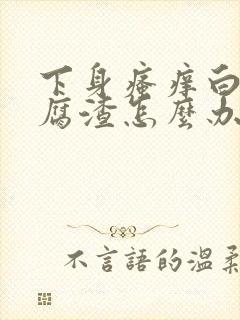 下身瘙痒白
腐渣怎麼办
不言語的温柔